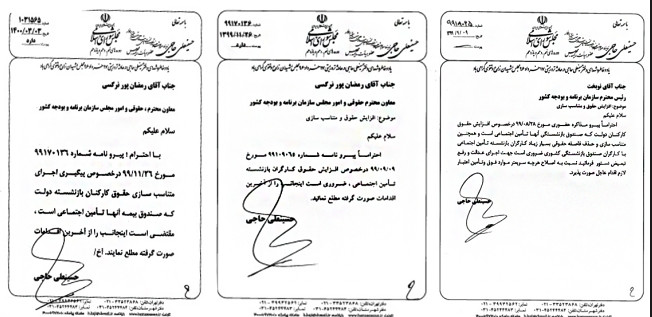 باسمه تعالی
شماره: ۱۰۳۱۵۶۵
تاریخ: ۱۴۰۰/۰۳/۰۳
مجلس شورای اسلامی
حسینعلی حاجی
جناب آقای رمضان پور نرگسی
معاون محترم، حقوقی و امور مجلس سازمان برنامه و بودجه کشور
سلام علیکم
با احترام؛ پیرو نامه شماره ۹۹۱۷۰۱۳۶
مورخ ۹۹/۱۱/۲۶ درخصوص پیگیری اجرای
متناسب سازی حقوق کارکنان بازنشسته دولت
که صندوق بیمه آنها تأمین اجتماعی است ،
مقتضی است اینجانب را از آخرین اقدامات
صورت گرفته مطلع نمایند. آخ/
حسینعلی حاجی
باسمه تعالی
شماره: ۹۹۱۷۰۱۳۶
تاریخ: ۱۳۹۹/۱۱/۲۶
مجلس شورای اسلامی
حسینعلی حاجی
جناب آقای رمضان پور نرگسی
معاون محترم حقوقی و امور مجلس سازمان برنامه و بودجه کشور
موضوع: افزایش حقوق و متناسب سازی
سلام علیکم
احتراماً پیرو نامه شماره ۹۹۱۰۹۰۶۵ مورخ
۹۹/۰۹/۰۹ درخصوص افزایش حقوق کارگران بازنشسته
تأمین اجتماعی ، ضروری است اینجانب را از آخرین
اقدامات صورت گرفته مطلع نمائید.
حسینعلی حاجی
باسمه تعالی
مجلس شورای اسلامی
حسینعلی حاجی
جناب آقای نوبخت
رئیس محترم سازمان برنامه و بودجه کشور
موضوع: افزایش حقوق و متناسب سازی
سلام علیکم
احتراماً پیرو مذاکره حضوری مورخ ۹۹/۰۸/۲۸ درخصوص افزایش حقوق
کارکنان دولت که صندوق بازنشستگی آنها تأمین اجتماعی است و همچنین
متناسب سازی و حذف فاصله حقوقی بسیار زیاد کارگران بازنشسته تأمین اجتماعی
با کارکنان صندوق بازنشستگی کشوری ضروری است جهت اجرای عدالت و رفع
تبعیض دستور فرمائید نسبت به اصلاح هرچه سریعتر موارد فوق وتأمین اعتبار
لازم اقدام عاجل صورت پذیرد.
حسینعلی حاجی